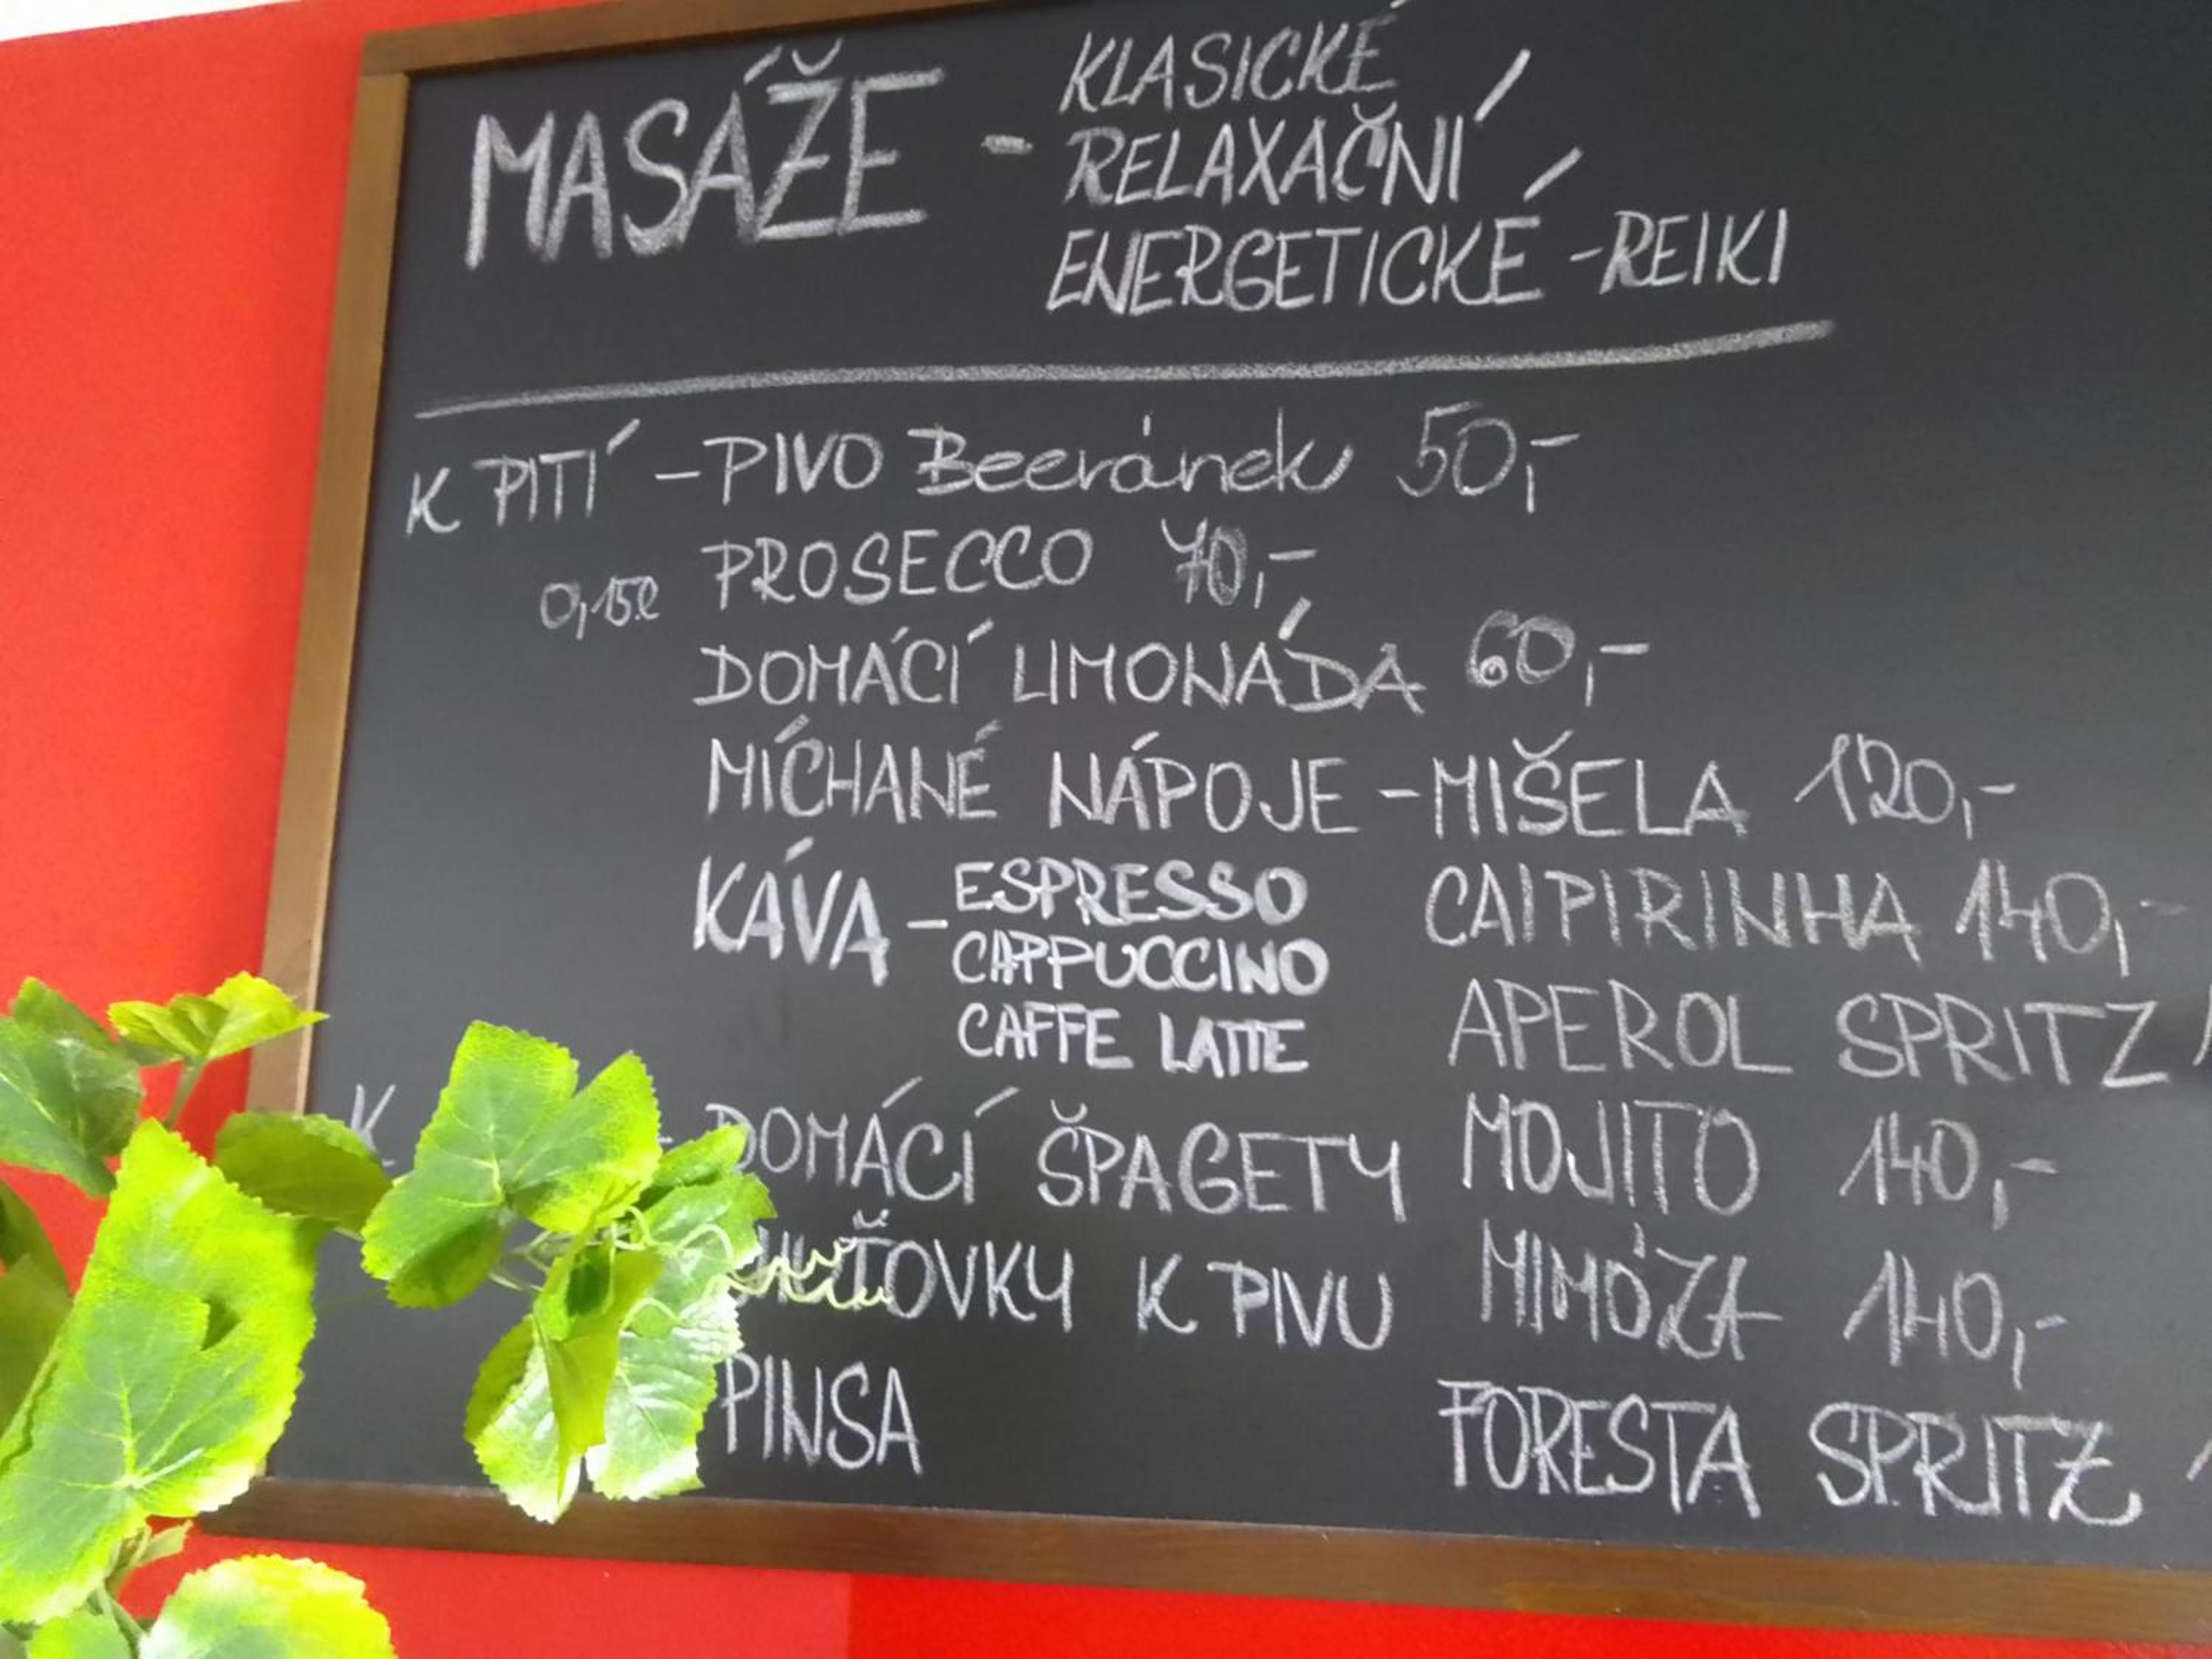 MASÁŽE - KLASICKÉ
RELAXAČNÍ
ENERGETICKÉ - REIKI
K PITÍ - PIVO Beeránek 50,-
0,15l PROSECCO 70,-
DOMÁCÍ LIMONÁDA 60,-
MÍCHANÉ NÁPOJE - MIŠELA 120,-
KÁVA - ESPRESSO
CAPPUCCINO
CAFFE LATTE
CAIPIRINHA 140,-
APEROL SPRITZ
MOJITO 140,-
MIMÓZA 140,-
FORESTA SPRITZ
K - DOMÁCÍ ŠPAGETY
K PIVU
PINSA